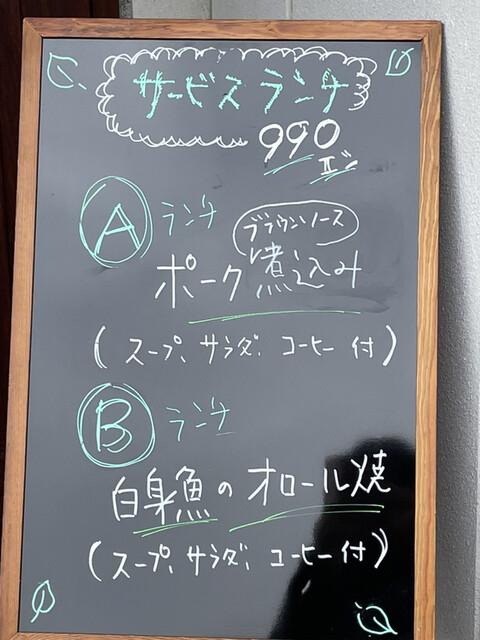 サービスランチ
990
エン
A ランチ
ブラウンソース
ポーク煮込み
(スープ、サラダ、コーヒー付)
B ランチ
白身魚のオロール焼
(スープ、サラダ、コーヒー付)